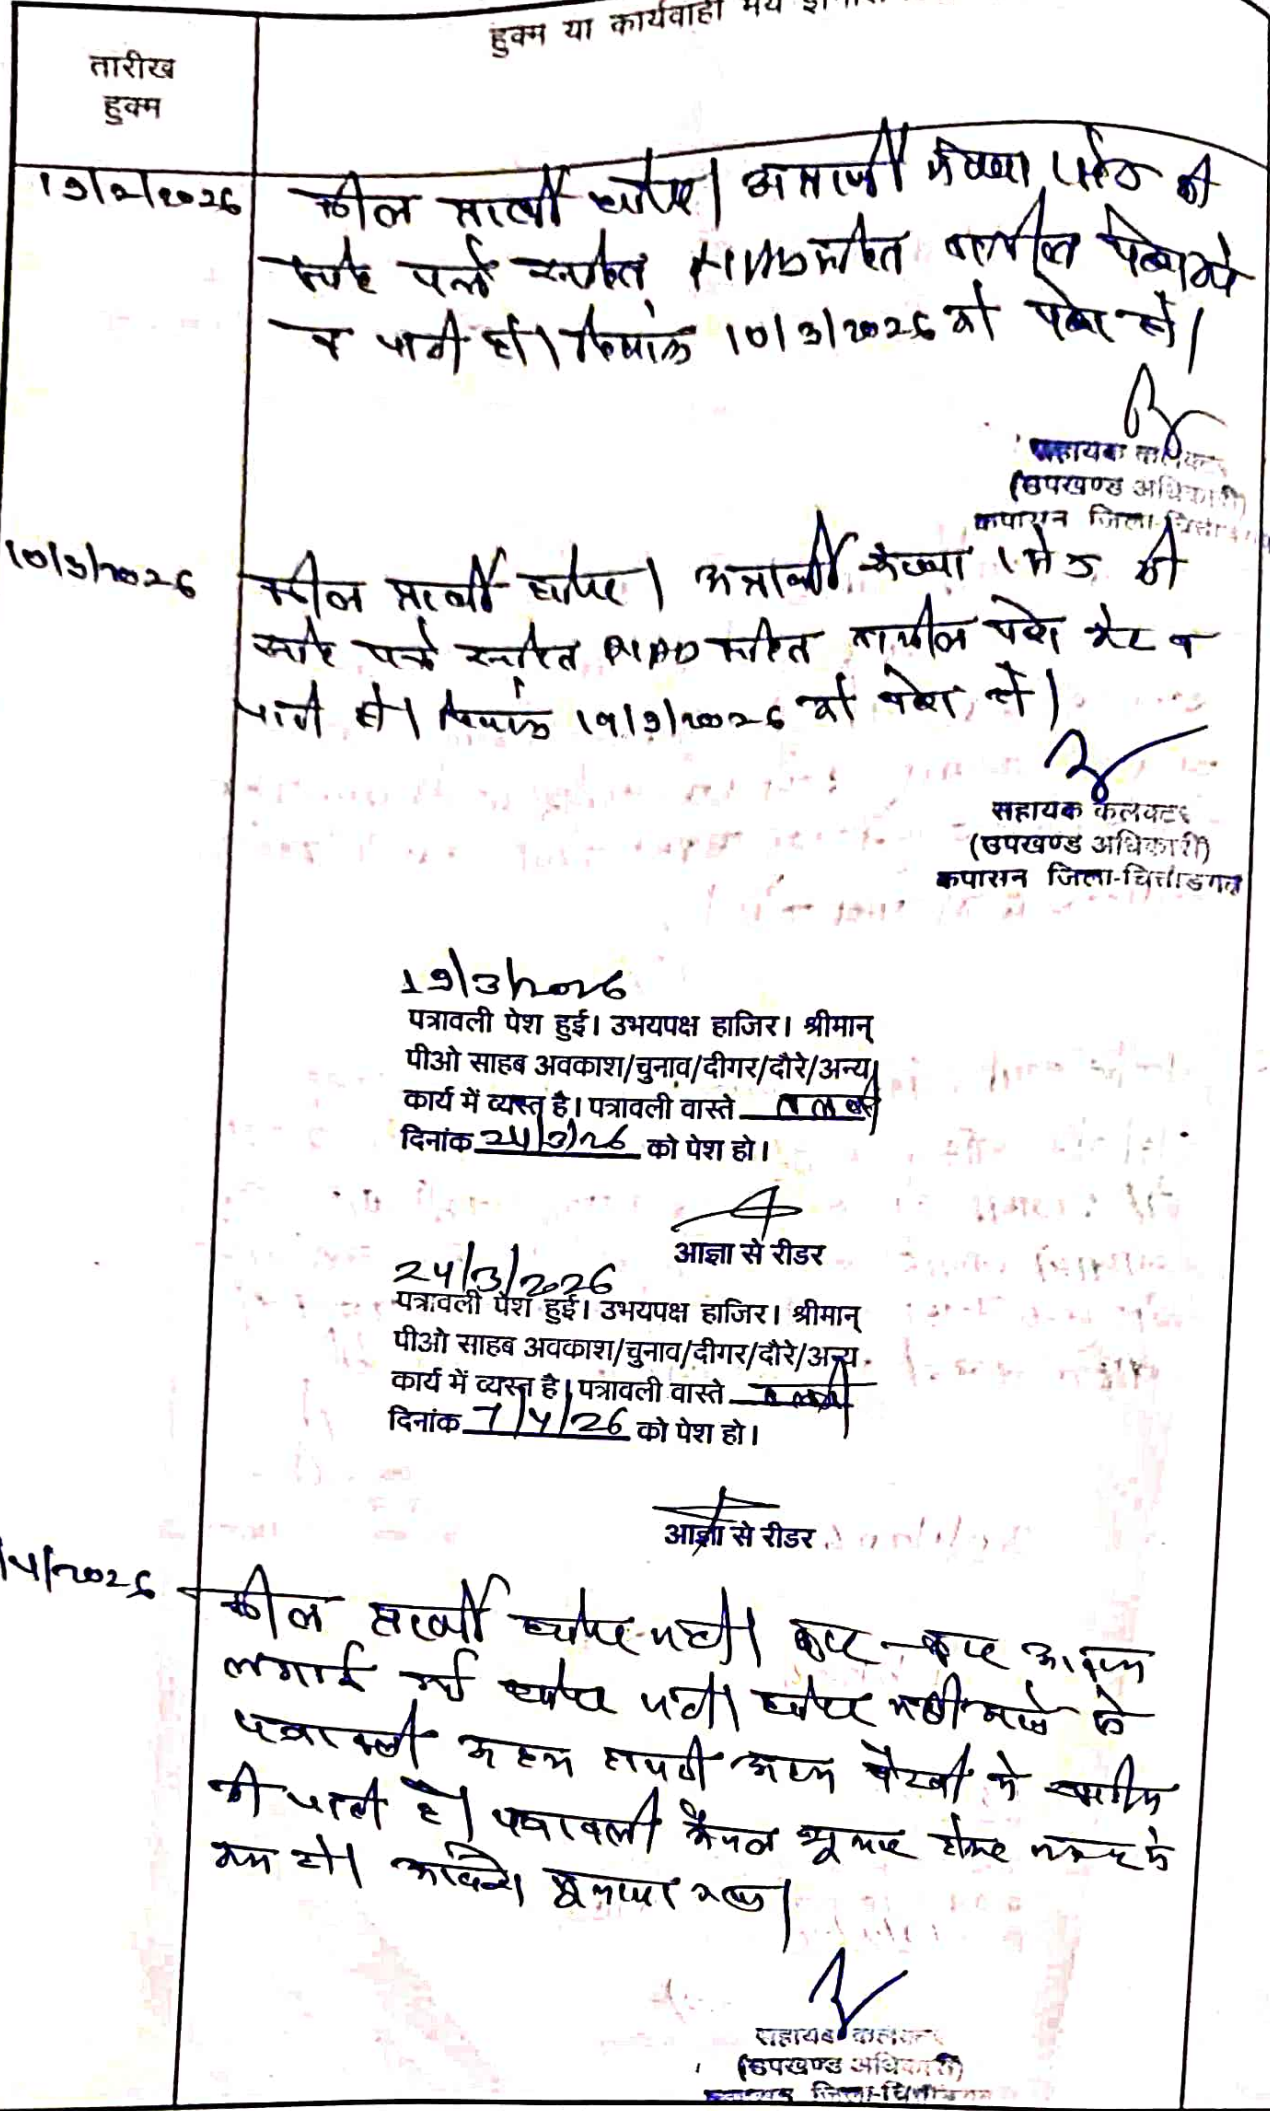 हुक्म या कार्यवाही मय
तारीख
हुक्म
19/2/2026
वकील प्रार्थी हाजिर। अप्रार्थी संख्या 1 से 5 की
रजि. सहित तामील पेश
व जारी हो। दिनांक 10/3/2026 को पेश हो।
सहायक कलक्टर
(उपखण्ड अधिकारी)
कपासन जिला-चित्तौ
10/3/2026
वकील प्रार्थी हाजिर। अप्रार्थी संख्या 1 से 5 की
सहित तामील पेश व
जारी हो। दिनांक 19/3/2026 को पेश हो।
सहायक कलक्टर
(उपखण्ड अधिकारी)
कपासन जिला-चित्तौडगढ
19/3/2026
पत्रावली पेश हुई। उभयपक्ष हाजिर। श्रीमान्
पीओ साहब अवकाश/चुनाव/दीगर/दौरे/अन्य
कार्य में व्यस्त है। पत्रावली वास्ते तलबी
दिनांक 24/3/26 को पेश हो।
आज्ञा से रीडर
24/3/2026
पत्रावली पेश हुई। उभयपक्ष हाजिर। श्रीमान्
पीओ साहब अवकाश/चुनाव/दीगर/दौरे/अन्य
कार्य में व्यस्त है। पत्रावली वास्ते तलबी
दिनांक 7/4/26 को पेश हो।
आज्ञा से रीडर
/4/2026
वकील प्रार्थी हाजिर नही। बार-बार आवाज
लगाई गई हाजिर नही। हाजिर नही आने से
पत्रावली अदम हाजरी अदम पैरवी में खारीज
की जाती है। पत्रावली फैसल शुमार होकर नम्बर से
कम हो। आदेश सुनाया गया।
सहायक कलक्टर
(उपखण्ड अधिकारी)
जिला-चित्तौडगढ